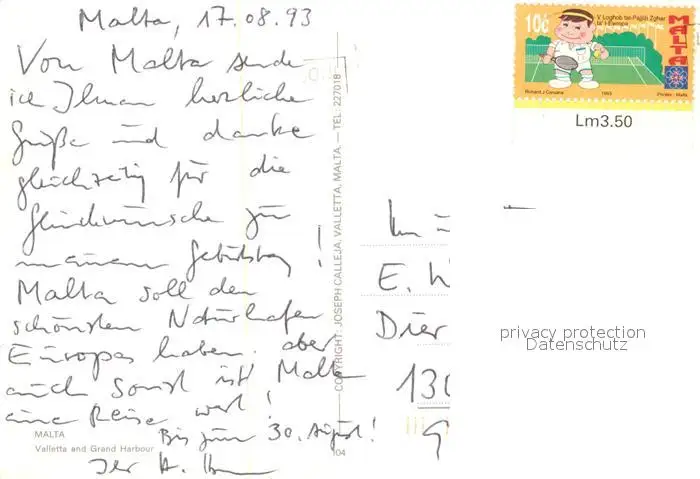 Malta, 17.08.93
Von Malta sende
ich Ihnen herzliche
Grüße und danke
gleichzeitig für die
Glückwünsche zu
meinem Geburtstag!
Malta soll den
schönsten Naturhafen
Europas haben, aber
auch sonst ist Malta
eine Reise wert!
Bis zum 30. August!
Ihr H.
MALTA
Valletta and Grand Harbour
104
COPYRIGHT: JOSEPH CALLEJA, VALLETTA, MALTA. — TEL: 227018
10c
V Logħob tal-Pajjiżi Żgħar
ta' l-Ewropa
MALTA
Richard J Caruana
1993
Printex - Malta
Lm3.50
E. W
Dier
130
privacy protection
Datenschutz